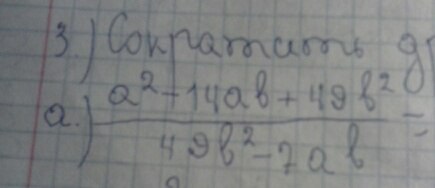 3.) Сократить
а.) a² - 14ab + 49b² =
49b² - 7ab